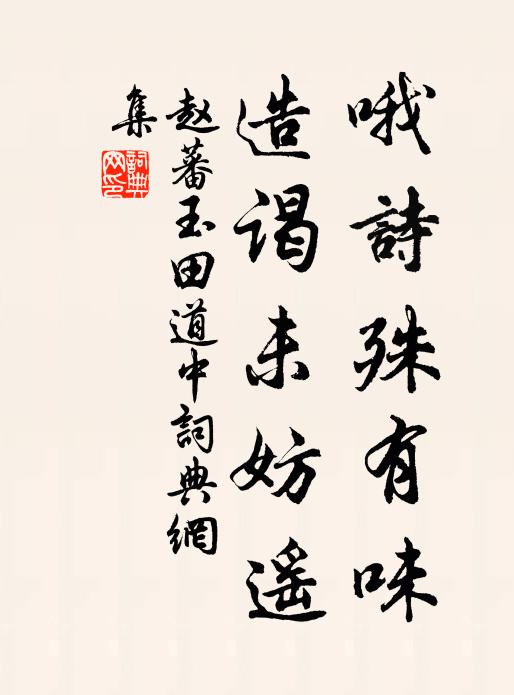 哦詩殊有味
造謁未妨遥
赵蕃玉田道中詞典網
集
詞典
网印